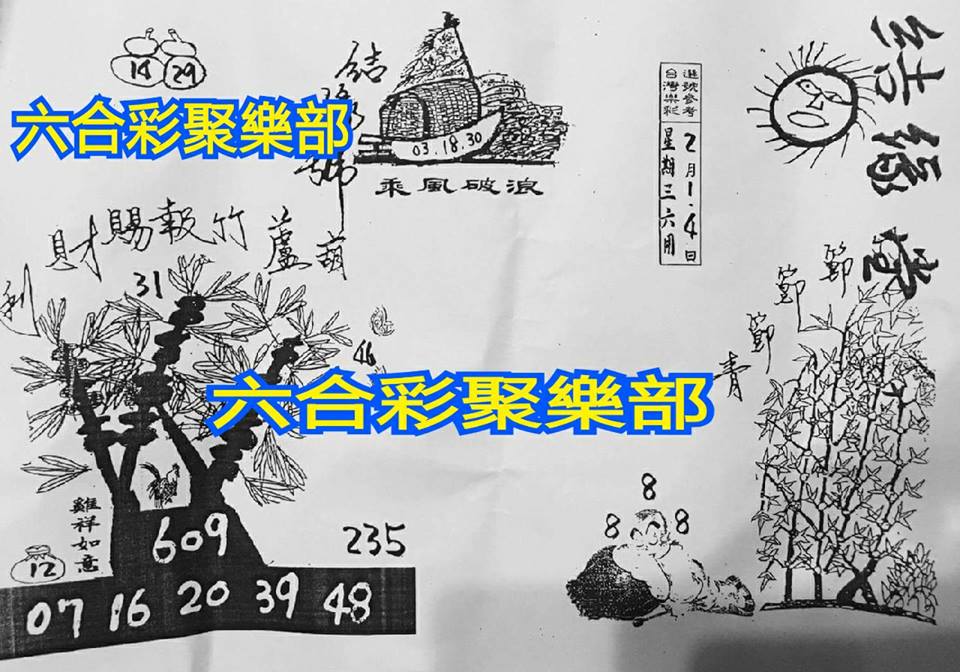 结缘堂
選號參考
台灣樂彩
2月1.4日
星期三六用
14 29
六合彩聚樂部
03.18.30
乘風破浪
財賜報竹蘆葫
利
31
46
六合彩聚樂部
節節節
青
雞祥如意
12
609
235
07 16 20 39 48
8
8 8